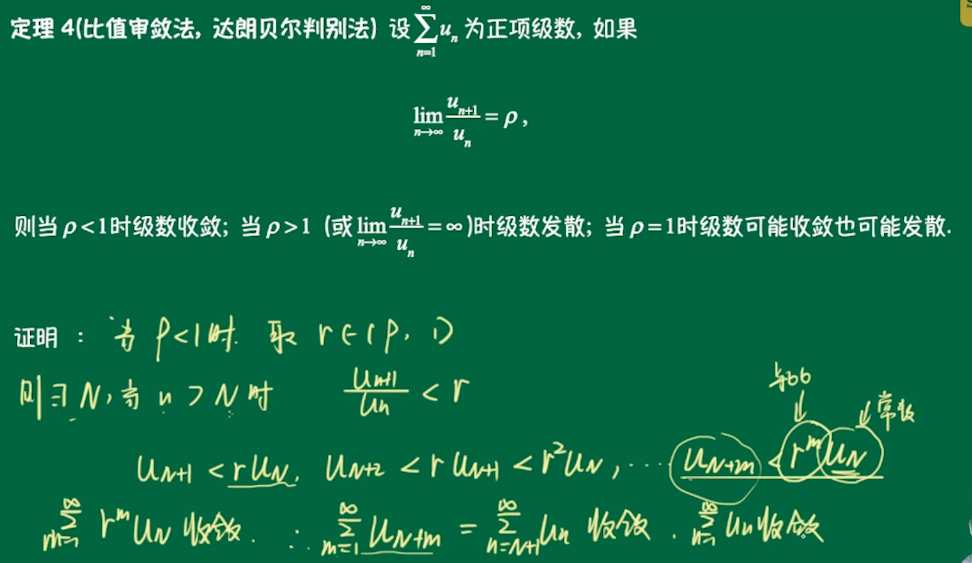 定理 4(比值审敛法, 达朗贝尔判别法) 设 $\sum_{n=1}^{\infty} u_n$ 为正项级数, 如果
$\lim_{n\to\infty} \frac{u_{n+1}}{u_n} = \rho$ ,
则当 ρ<1时级数收敛; 当 ρ>1 (或 $\lim_{n\to\infty} \frac{u_{n+1}}{u_n} = \infty$)时级数发散; 当 ρ=1时级数可能收敛也可能发散.
证明 : 当 ρ<1时. 取 r∈(ρ, 1)
则∃N, 当 n>N 时 $\frac{u_{n+1}}{u_n} < r$
等比
常数
$u_{N+1} < r u_N$, $u_{N+2} < r u_{N+1} < r^2 u_N$, ··· $u_{N+m} < r^m u_N$
$\sum_{m=1}^{\infty} r^m u_N$ 收敛. ∴ $\sum_{m=1}^{\infty} u_{N+m} = \sum_{n=N+1}^{\infty} u_n$ 收敛. $\sum_{n=1}^{\infty} u_n$ 收敛